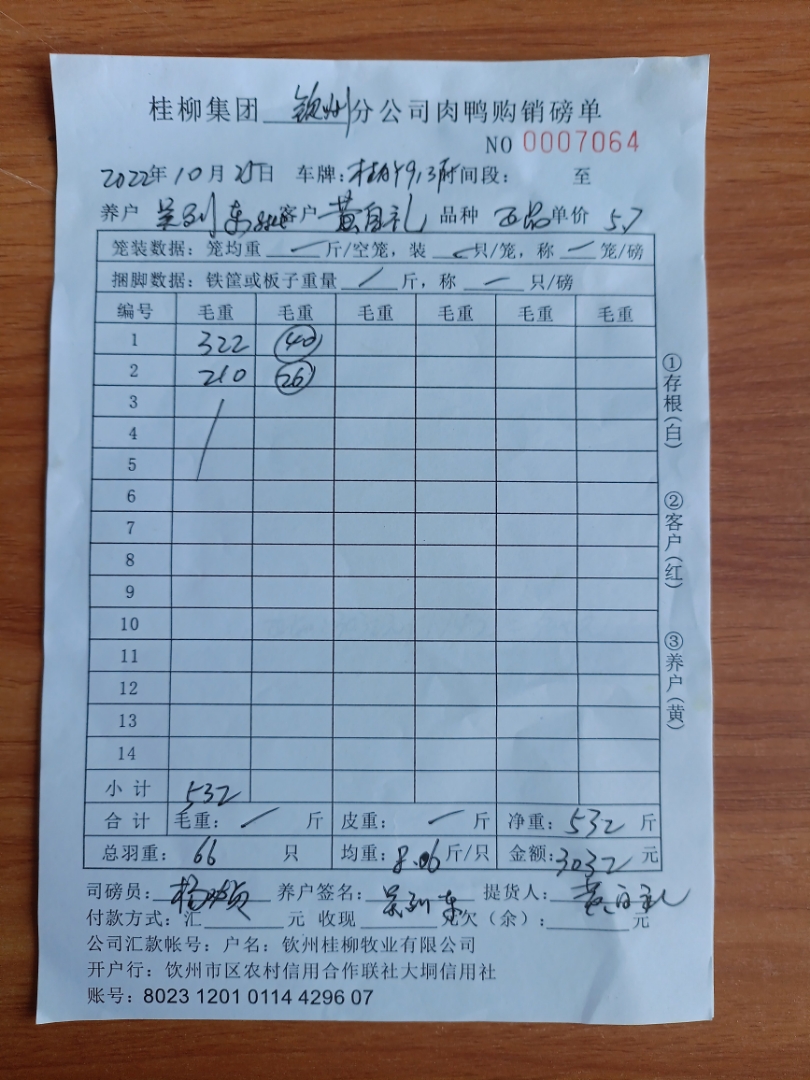 桂柳集团 钦州 分公司肉鸭购销磅单
NO 0007064
2022年10月25日 车牌: 时间段: 至
养户 东 客户 黄自礼 品种 单价 5.7
笼装数据: 笼均重 — 斤/空笼, 装 — 只/笼, 称 — 笼/磅
捆脚数据: 铁筐或板子重量 / 斤, 称 — 只/磅
编号 毛重 毛重 毛重 毛重 毛重 毛重
1 322 40
2 210 26
3
4
5
6
7
8
9
10
11
12
13
14
小计 532
合计 毛重: — 斤 皮重: — 斤 净重: 532 斤
总羽重: 66 只 均重: 8.06 斤/只 金额: 3032 元
司磅员: 杨 养户签名: 东 提货人: 黄自礼
付款方式: 汇 元 收现 元欠(余): 元
公司汇款帐号: 户名: 钦州桂柳牧业有限公司
开户行: 饮州市区农村信用合作联社大垌信用社
账号: 8023 1201 0114 4296 07
①存根(白)
②客户(红)
③养户(黄)